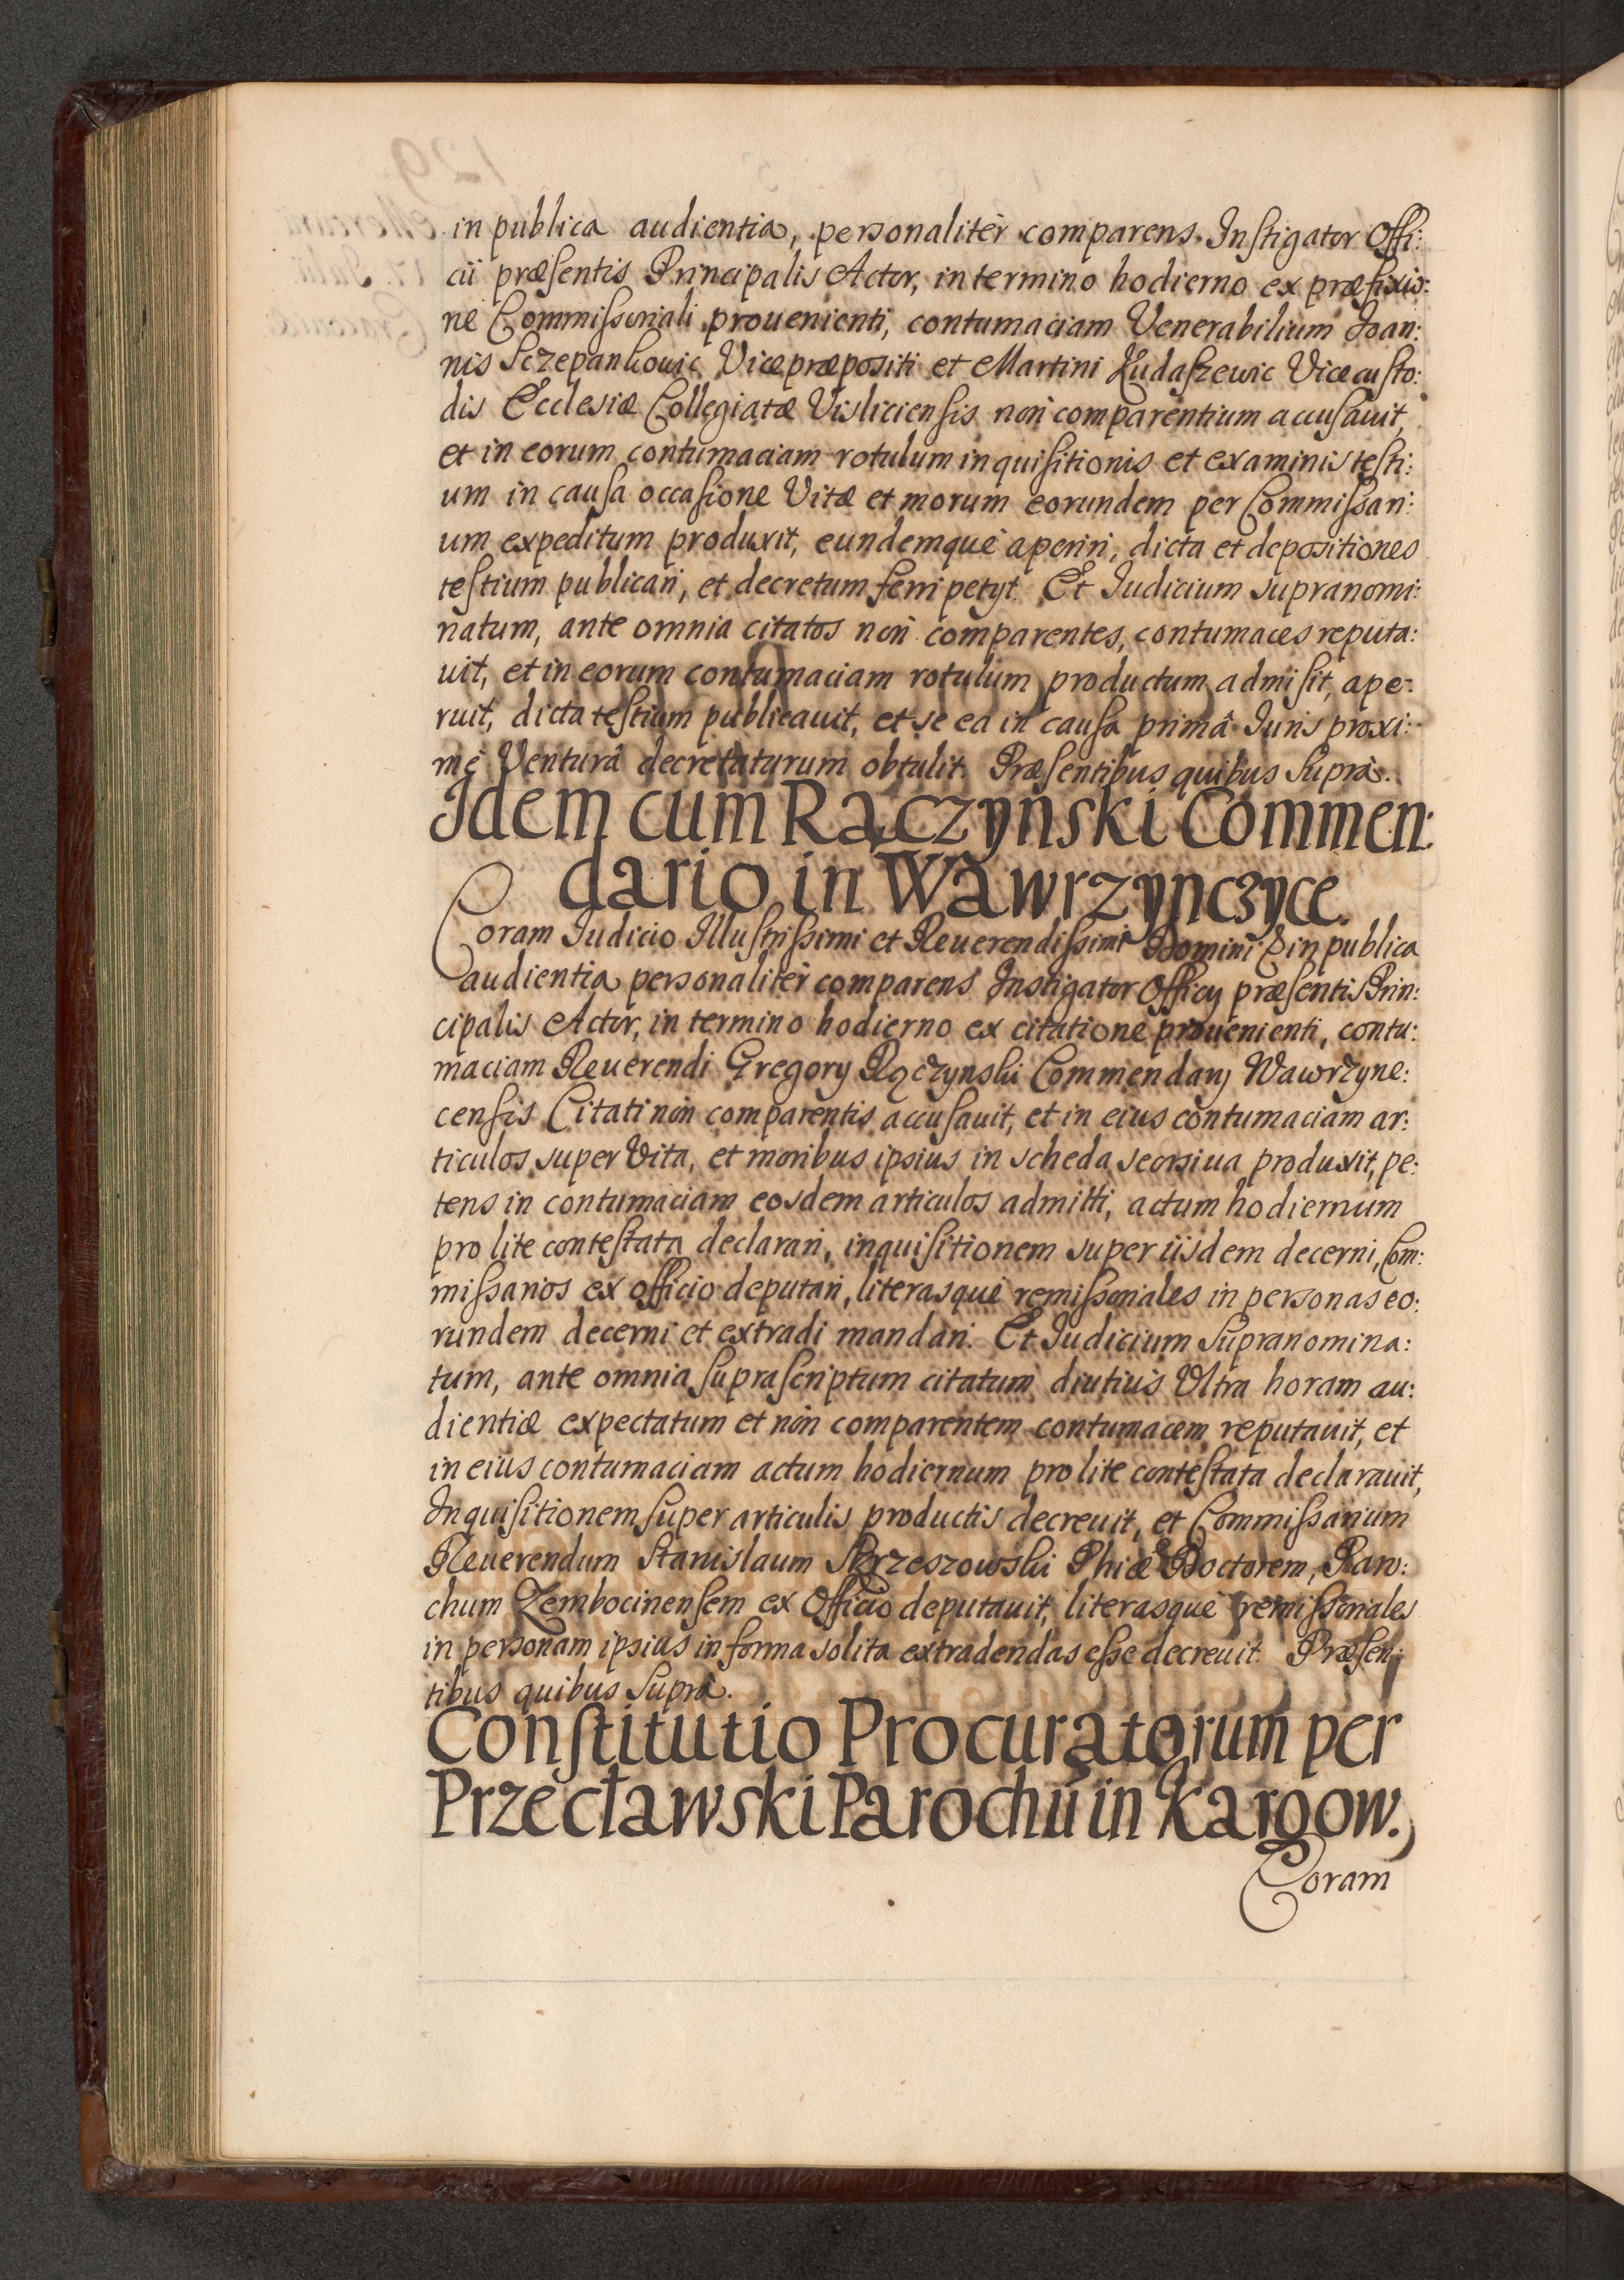 in publica audientia, personalitèr comparens Instigator Offi:
cii præsentis Principalis Actor, in termino hodierno ex præfixio:
ne Commissoriali prouenienti, contumaciam Venerabilium Ioan:
nis Sczepankowic Vicepræpositi et Martini Ludaszewic Vicecusto:
dis Ecclesiæ Collegiatæ Visliciensis non comparentium accusauit,
et in eorum contumaciam rotulum inquisitionis et examinis testi:
um in causa occasione Vitæ et morum eorundem per Commissari:
um expeditum produxit, eundemque aperiri, dicta et depositiones
testium publicari, et decretum ferri petyt. Et Iudicium supranomi:
natum, ante omnia citatos non comparentes, contumaces reputa:
uit, et in eorum contumaciam rotulum productum admisit, ape:
ruit, dicta testium publicauit, et se ea in causa primâ Iuris proxi:
mè Venturâ decretaturum obtulit. Præsentibus quibus Suprà.
Idem cum Rączyński Commen:
dario in Wawrzynczyce.
Coram Iudicio Illustrissimi et Reuerendissimi Domini & in publica
audientia personalitèr comparens Instigator Officy præsentis Prin:
cipalis Actor, in termino hodierno ex citatione prouenienti, contu:
maciam Reuerendi Gregory Rączynski Commendary Wawrzyne:
censis Citati non comparentis accusauit, et in eius contumaciam ar:
ticulos super Vita, et moribus ipsius in scheda seorsiua produxit, pe:
tens in contumaciam eosdem articulos admitti, actum hodiernum
pro lite contestata declarari, inquisitionem super iisdem decerni, Com:
missarios ex officio deputari, literasque remissoriales in personas eo:
rundem decerni et extradi mandari. Et Iudicium Supranomina:
tum, ante omnia suprascriptum citatum diutius Vltra horam au:
dientiæ expectatum et non comparentem contumacem reputauit, et
in eius contumaciam actum hodiernum pro lite contestata declarauit,
Inquisitionem super articulis productis decreuit, et Commissarium
Reuerendum Stanislaum Skrzeszowski Phiæ Doctorem, Paro:
chum Zembocinensem ex Officio deputauit, literasque remissoriales
in personam ipsius in forma solita extradendas esse decreuit. Præsen:
tibus quibus Suprà.
Constitutio Procuratorum per
Przecławski Parochū in Kargow.
Coram